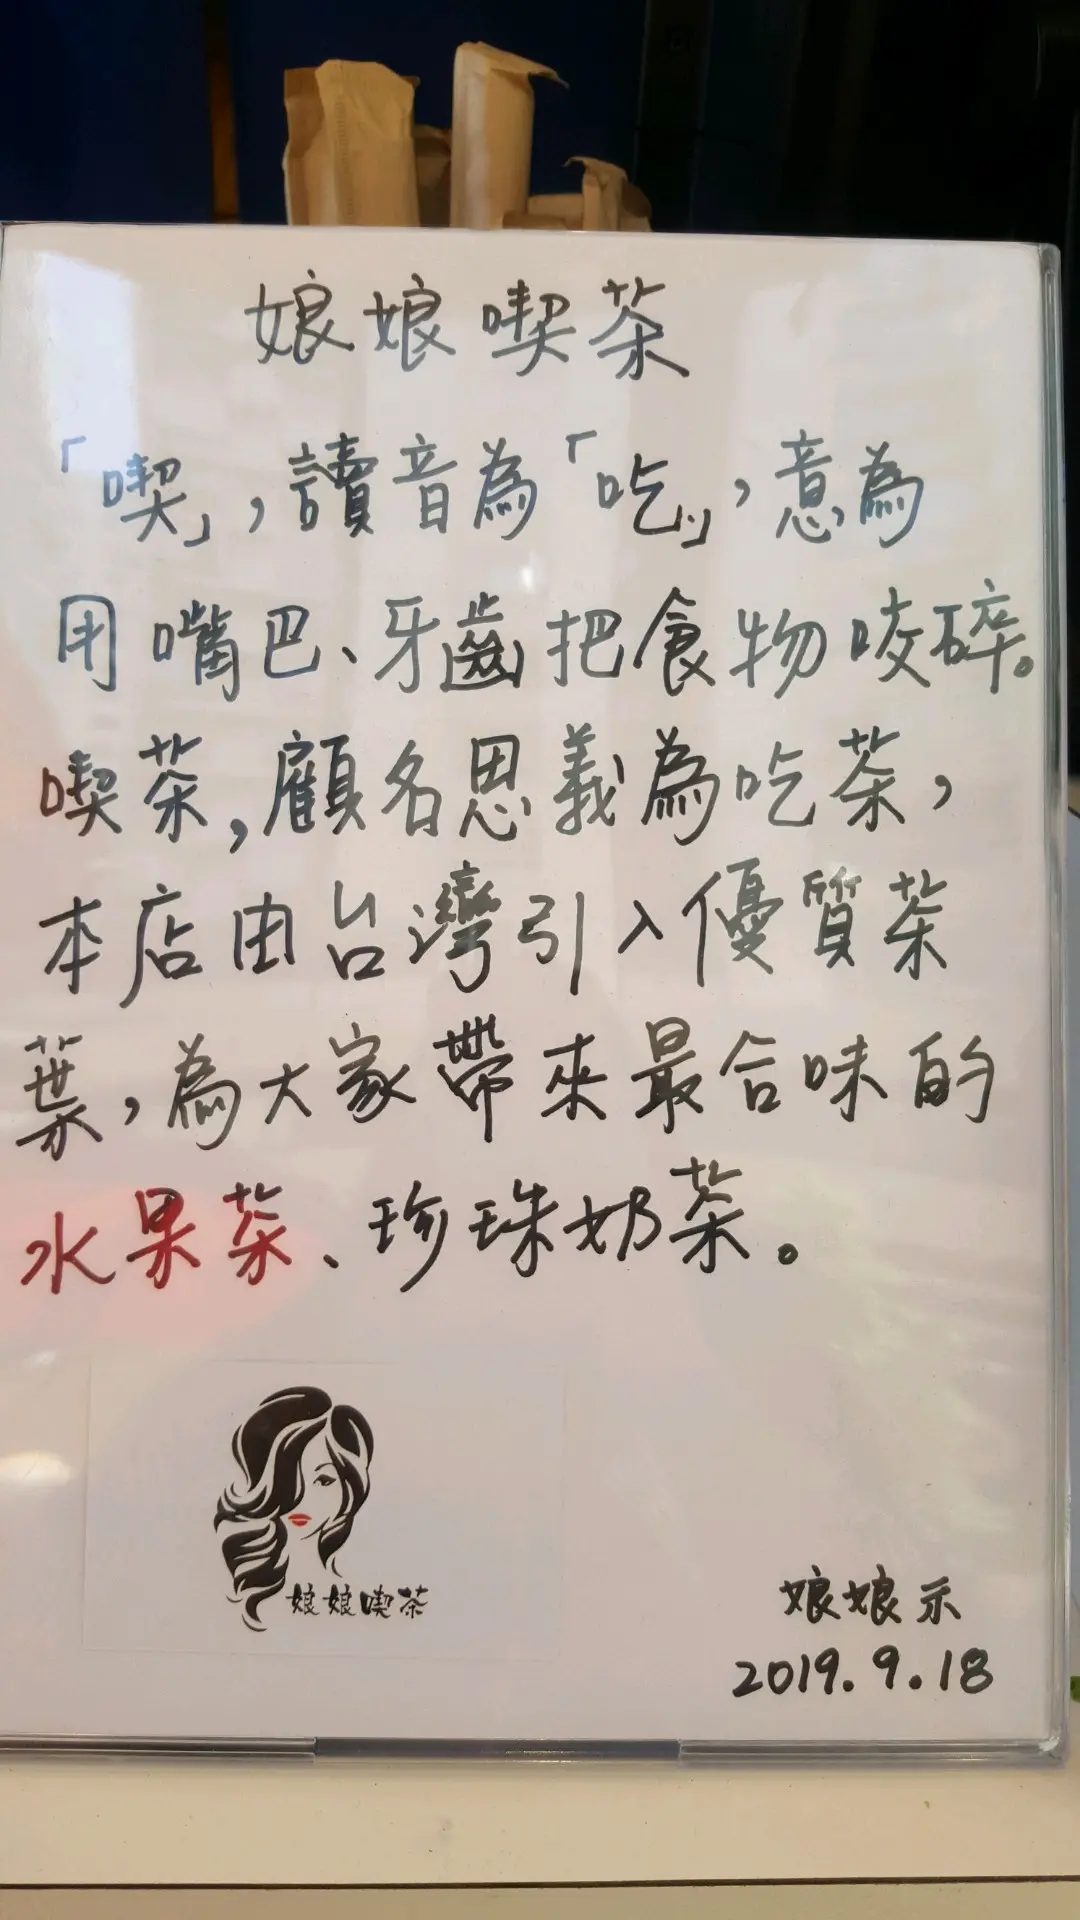 娘娘喫茶
「喫」,讀音為「吃」,意為
用嘴巴、牙齒把食物咬碎。
喫茶,顧名思義為吃茶,
本店由台灣引入優質茶
葉,為大家帶來最合味的
水果茶、珍珠奶茶。
娘娘喫茶
娘娘示
2019.9.18